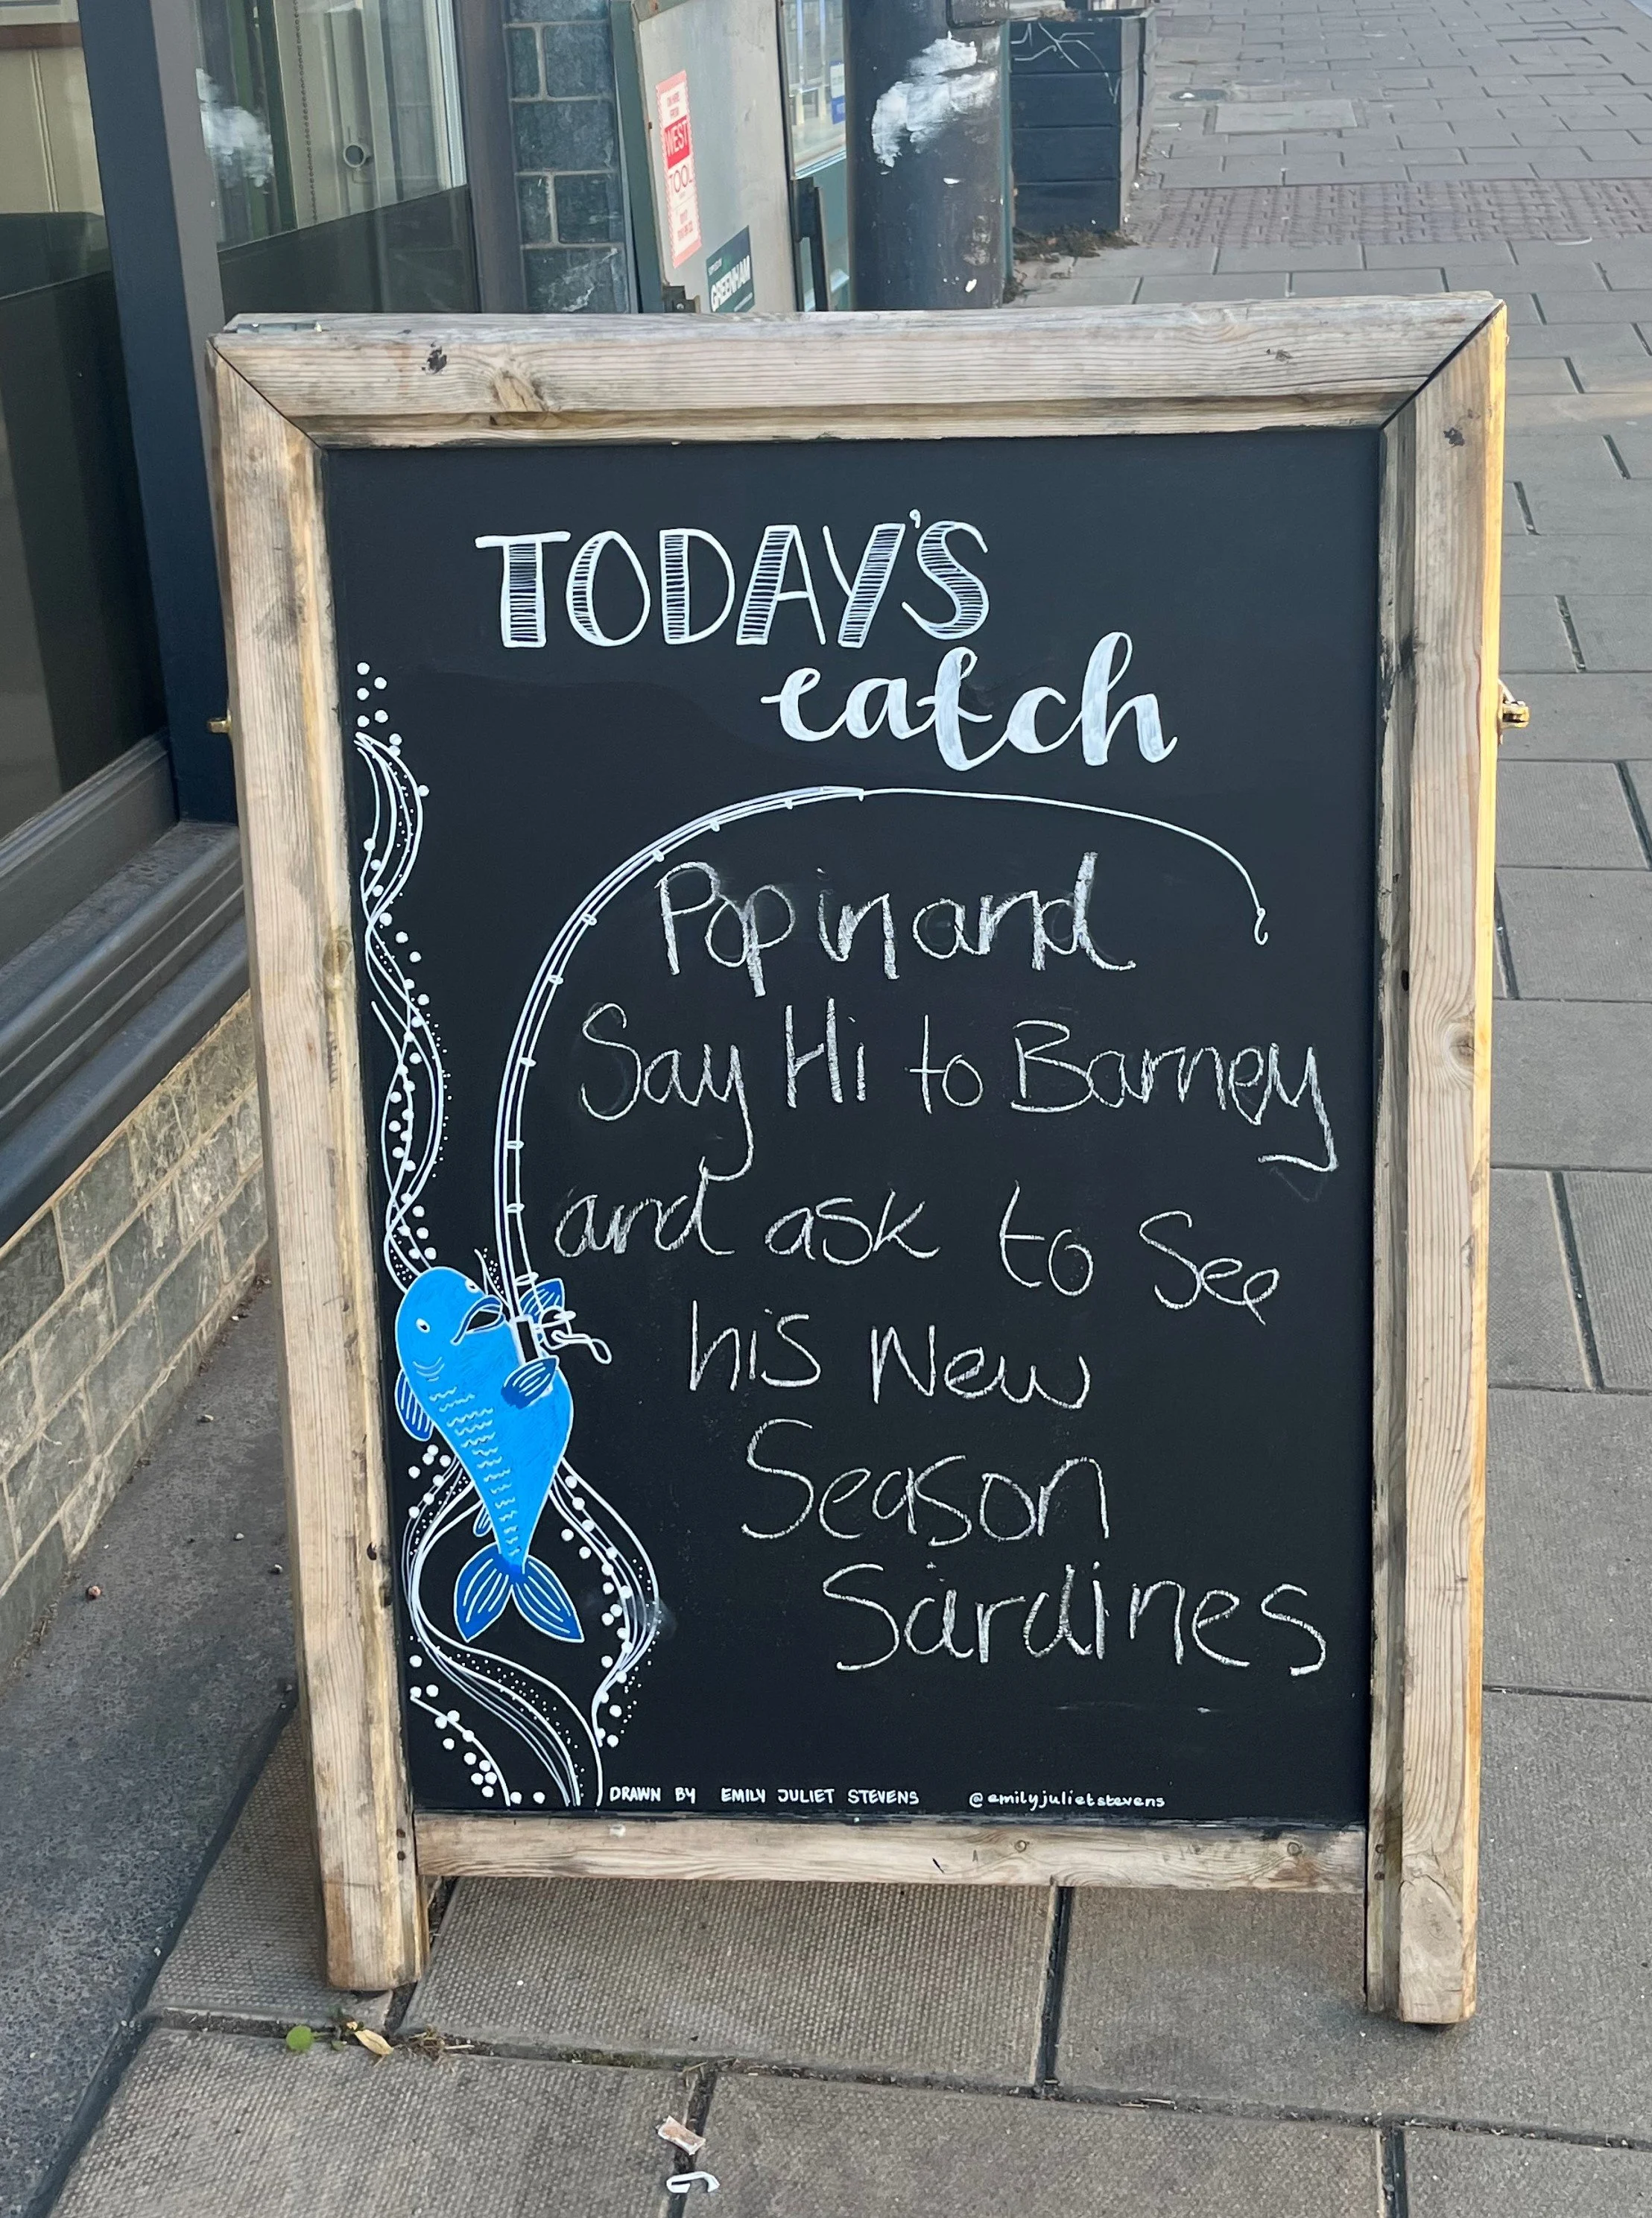 WEST
TOOL
GREENHAM
TODAY'S
catch
Pop in and
Say Hi to Barney
and ask to See
his New
Season
Sardines
DRAWN BY EMILY JULIET STEVENS @emilyjulietstevens